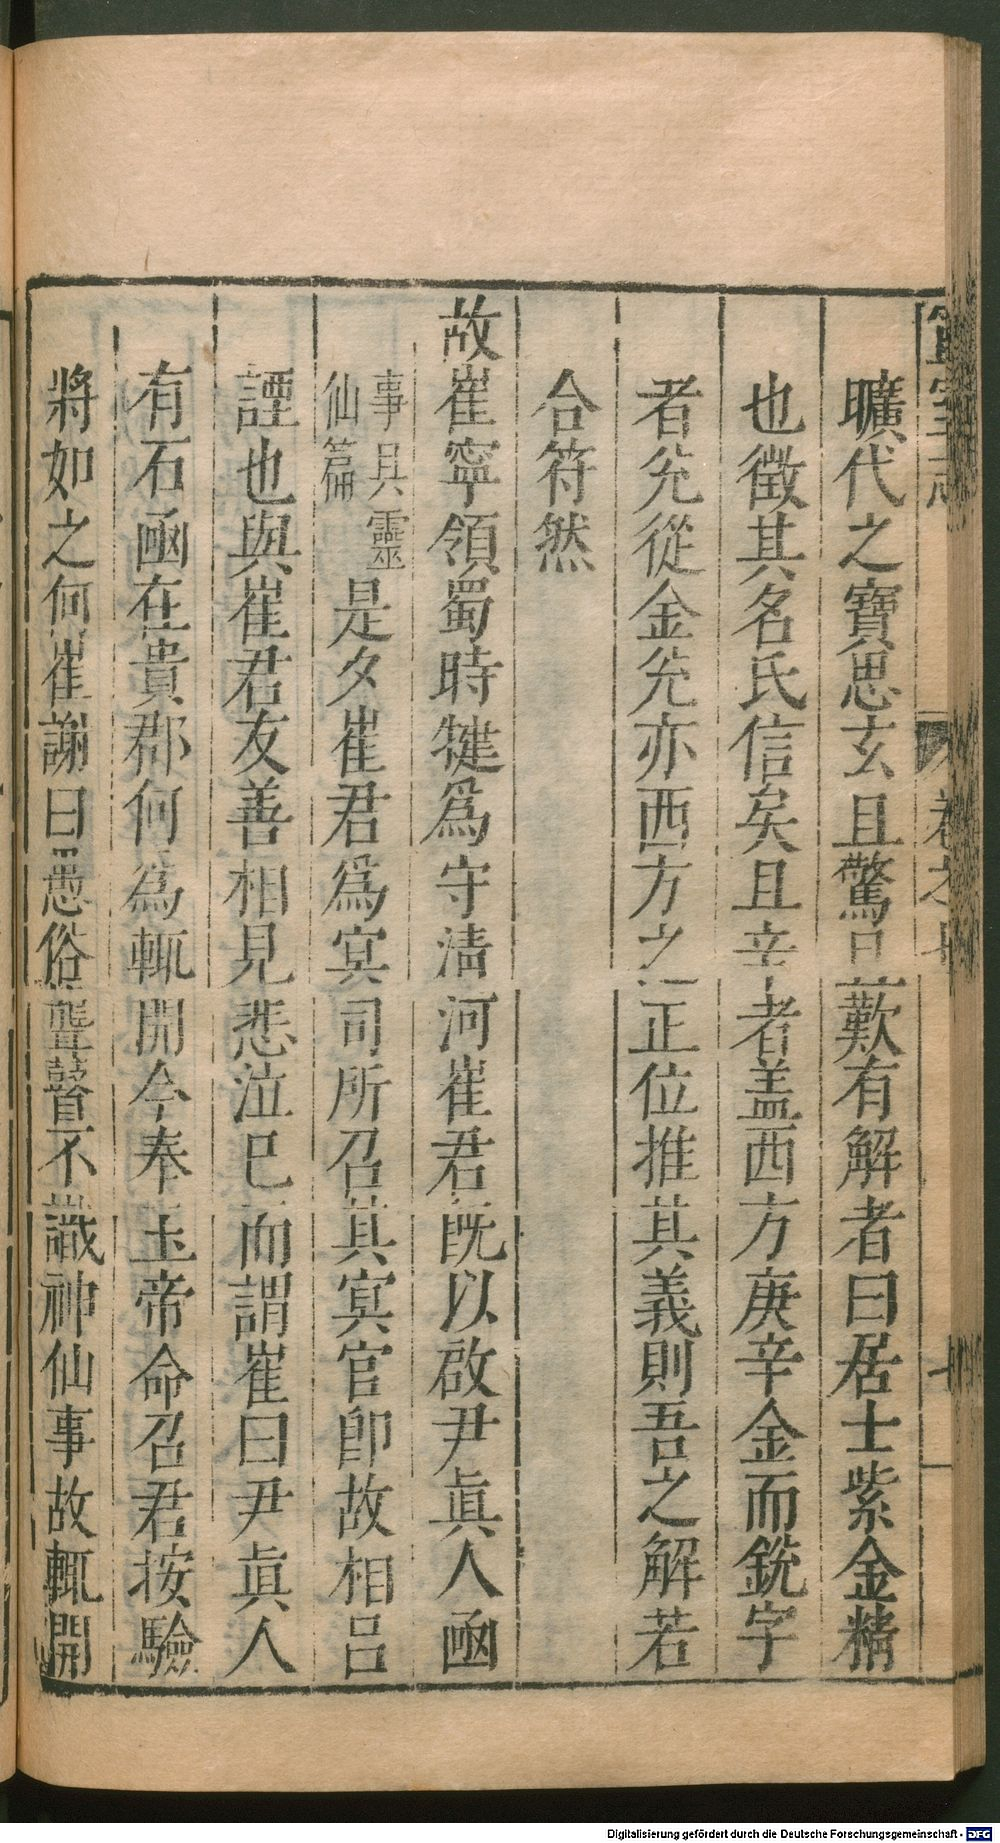 曠代之寶思玄且驚且歎有解者曰居士紫金精
也徵其名氏信矣且辛者盖西方庚辛金而銑字
者兊從金兊亦西方之正位推其義則吾之解若
合符然
故崔寧領蜀時犍爲守淸河崔君旣以啟尹眞人凾
事具靈
仙篇
是夕崔君爲冥司所召其冥官卽故相呂
諲也與崔君友善相見悲泣巳而謂崔曰尹眞人
有石凾在貴郡何爲輒開今奉玉帝命召君按驗
將如之何崔謝曰愚俗聾瞽不識神仙事故輒開
Digitalisierung gefördert durch die Deutsche Forschungsgemeinschaft - DFG